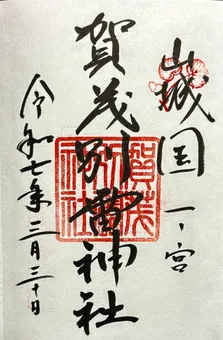 山城国一ノ宮
賀茂別雷神社
令和七年三月三十日
賀茂別雷神社